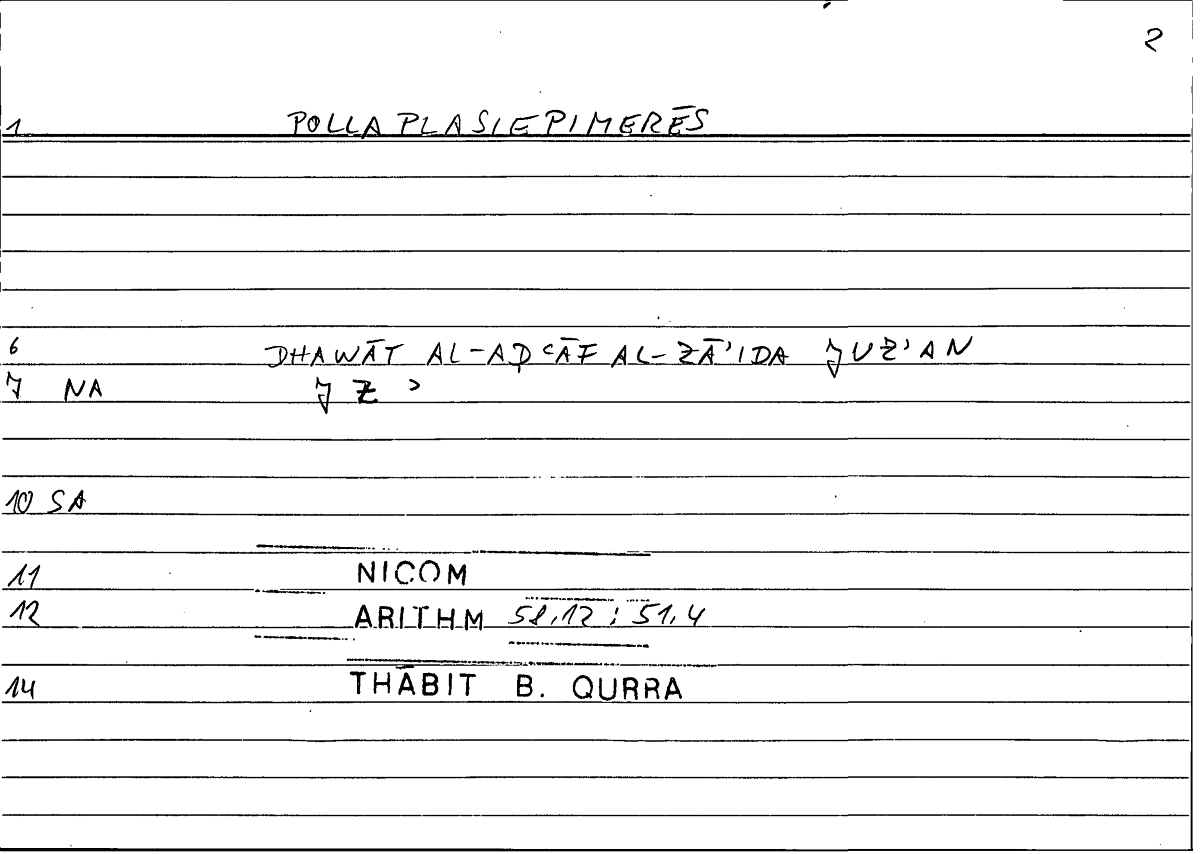 2
1 POLLAPLASIEPIMERĒS
6 DHAWĀT AL-AḌʿĀF AL-ZĀʾIDA JUZʾAN
7 NA J Z ʾ
10 SA
11 NICOM
12 ARITHM 58,12 ; 51,4
14 THĀBIT B. QURRA